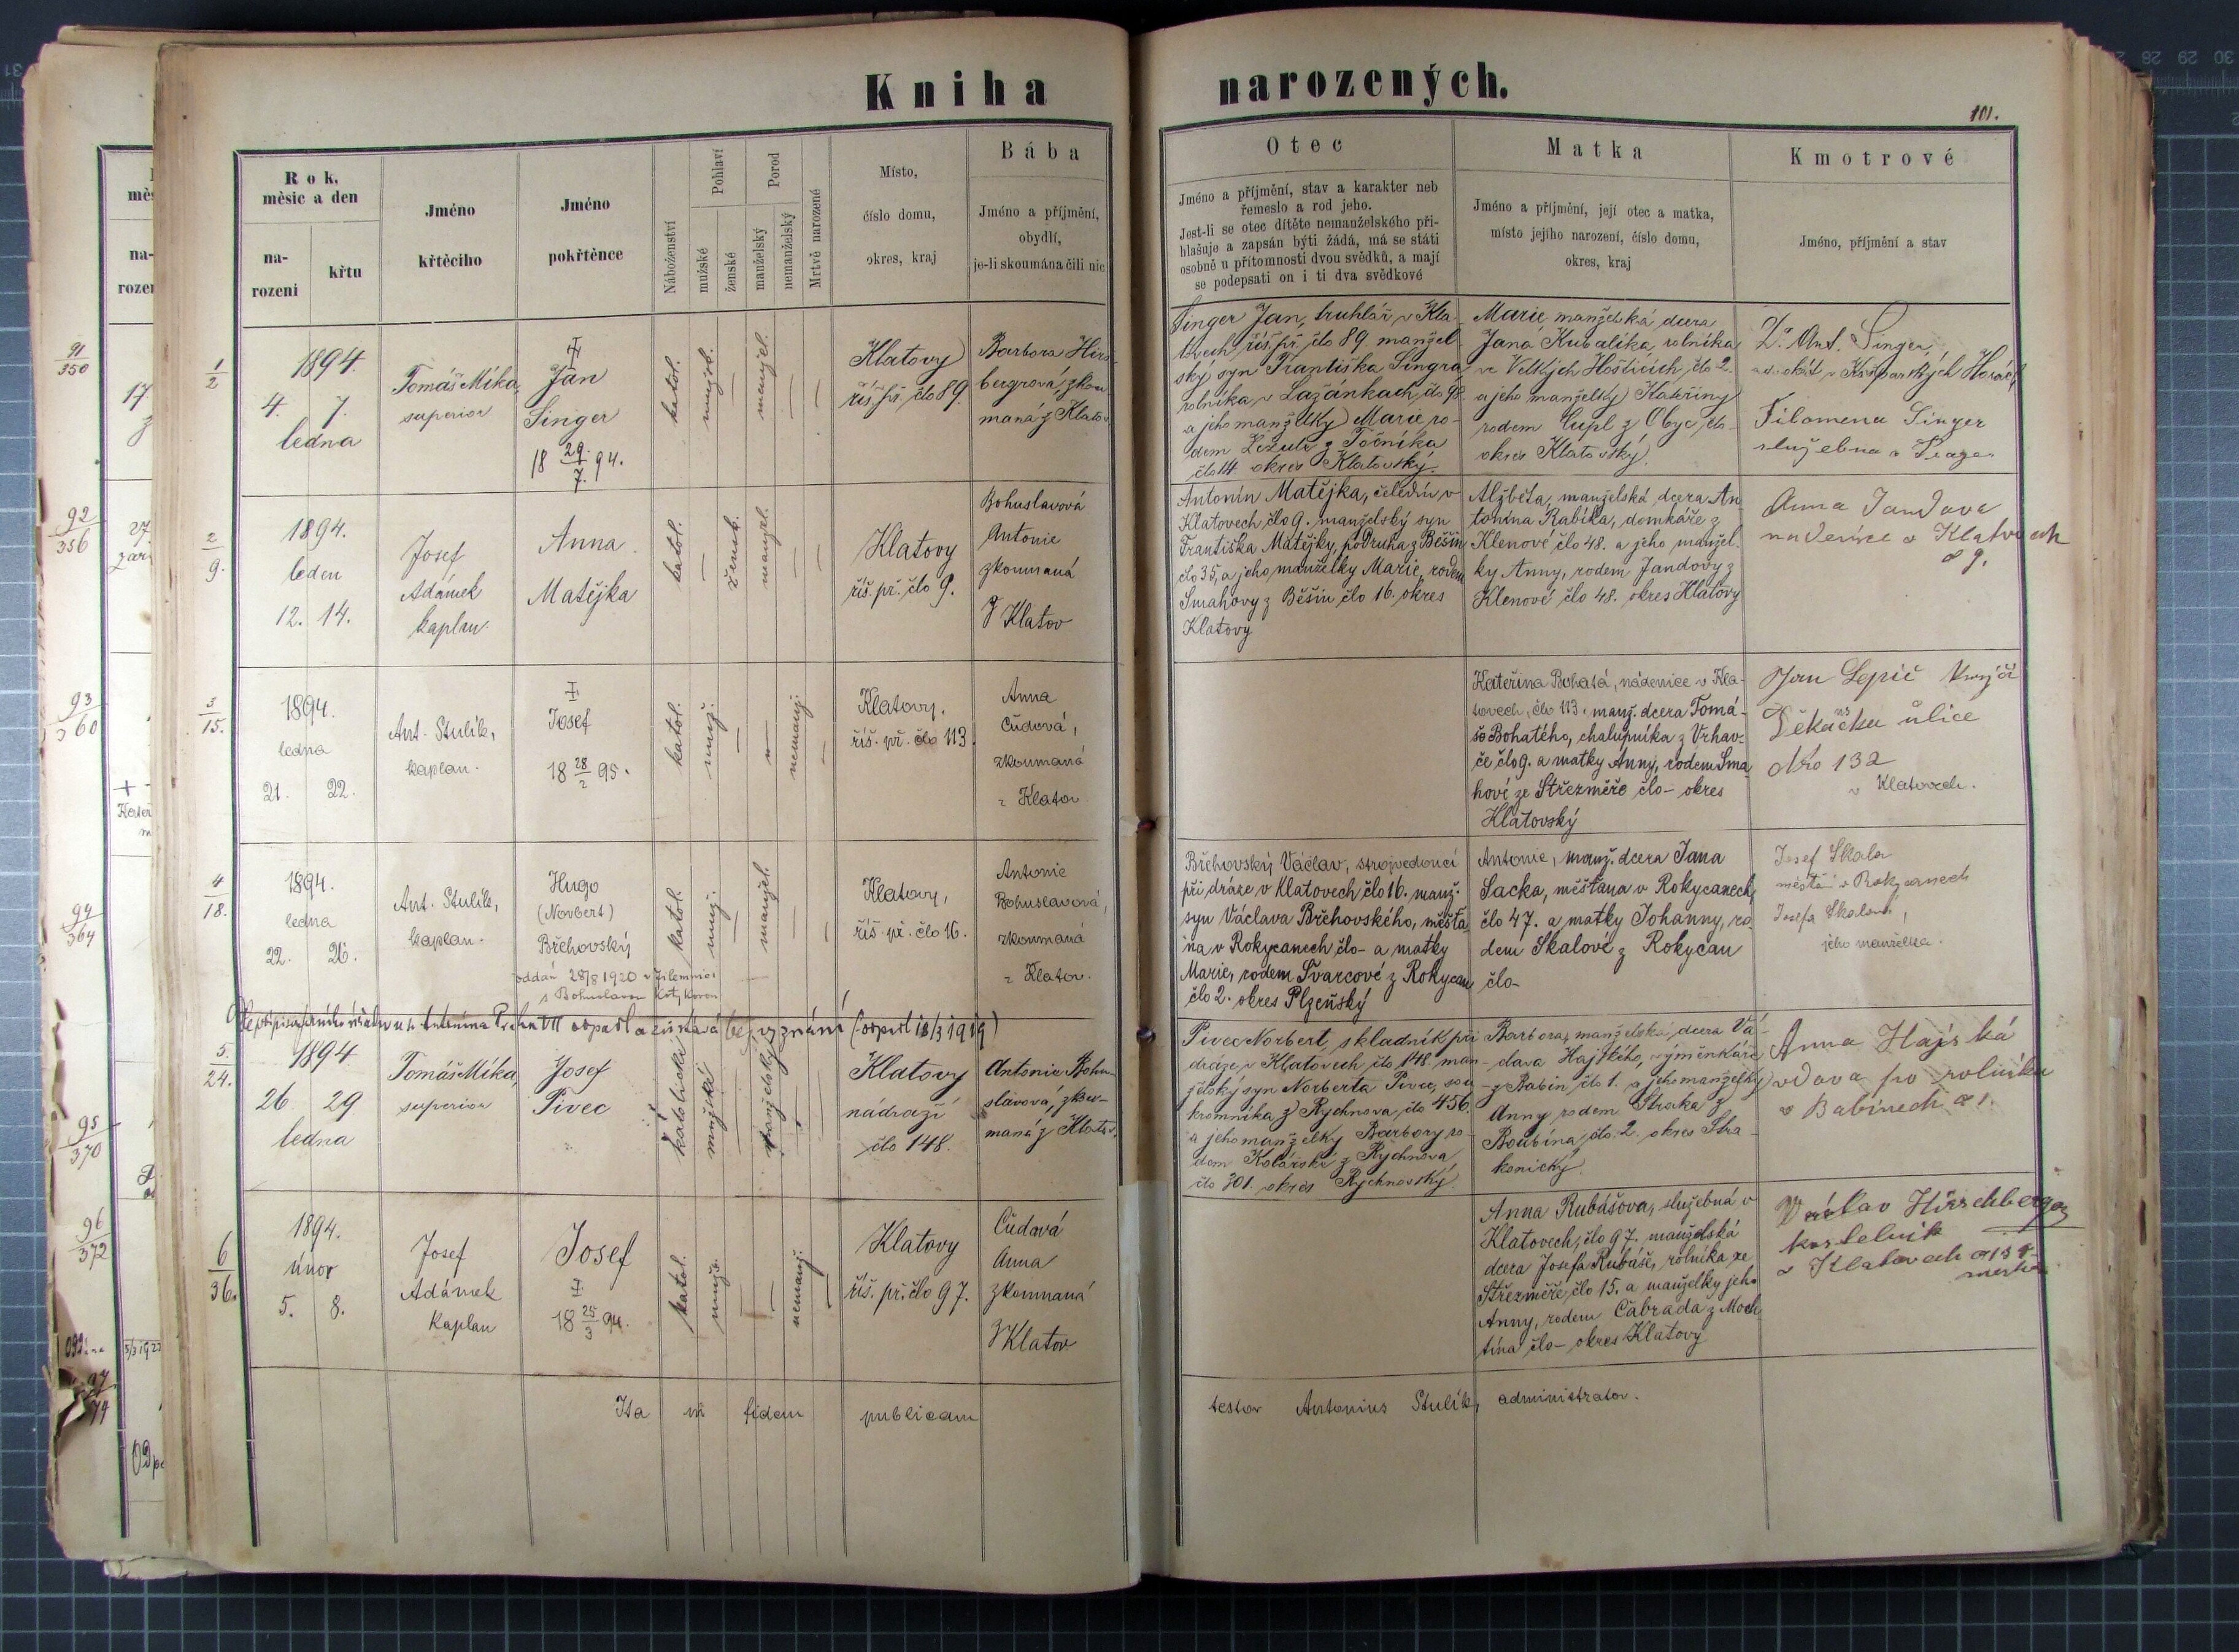 Kniha narozených.
101.
Rok, měsíc a den
na-
rození
křtu
Jméno
křtěcího
Jméno
pokřtěnce
Náboženství
Pohlaví
mužské
ženské
Porod
manželský
nemanželský
Mrtvě narozené
Místo,
číslo domu,
okres, kraj
Bába
Jméno a příjmění,
obydlí,
je-li skoumána čili nic
Otec
Jméno a příjmění, stav a karakter neb
řemeslo a rod jeho.
Jest-li se otec dítěte nemanželského při-
hlašuje a zapsán býti žádá, má se státi
osobně u přítomnosti dvou svědků, a mají
se podepsati on i ti dva svědkové
Matka
Jméno a příjmění, její otec a matka,
místo jejího narození, číslo domu,
okres, kraj
Kmotrové
Jméno, příjmění a stav
1/2
1894.
4. 7.
ledna
Tomáš Míka,
superior
Jan
Singer
18 29./7. 94.
katol.
manžel.
Klatovy
říš. př. člo 89.
Barbora Hirs
bergrová, zkou
maná z Klatov
Singer Jan, truhlář v Kla-
tovech, říš. př. člo 89. manžel-
ský syn Františka Singra
rolníka v Lažánkach, člo 98
a jeho manželky Marie ro-
dem z Točníka
člo 14 okres Klatovský.
Marie manželská dcera
Jana Kubalíka, rolníka
ve Velkých Hošticích, člo 2.
a jeho manželky Kateřiny
rodem Cupl z Obyc, člo -
okres Klatovský.
Dr. Ant. Singer,
advokát v Kašparských Horách
Filomena Singer
služebna v Praze
2/9.
1894.
leden
12. 14.
Josef
Adámek
kaplan
Anna
Matějka
katol.
žensk.
manžel.
Klatovy
říš. př. člo 9.
Bohuslavová
Antonie
zkoumaná
z Klatov
Antonín Matějka, čeledín v
Klatovech člo 9. manželský syn
Františka Matějky, podruha z Běšin
člo 35, a jeho manželky Marie, rodem
Smahovy z Běšin člo 16. okres
Klatovy
Alžběta, manželská dcera An
tonína Rabíka, domkáře z
Klenové člo 48. a jeho manžel-
ky Anny, rodem Jandovy z
Klenové člo 48. okres Klatovy
Anna Jandova
nadenice v Klatovech
č 9.
3/15.
1894.
ledna
21. 22.
Ant. Stulík,
kaplan.
Josef
18 28/2 95.
katol.
muž.
nemanž.
Klatovy,
říš. př. člo 113.
Anna
Čudová,
zkoumaná
z Klatov
Kateřina Bohatá, nádenice v Kla-
tovech, člo 113. manž. dcera Tomá-
še Bohatého, chalupníka z Vrhav-
če člo 9. a matky Anny, rodem Sma
hoví ze Střezměře člo - okres
Klatovský
Jan Lepič
ulice
Nro 132
v Klatovech.
4/18.
1894.
ledna
22. 26.
Ant. Stulík,
kaplan.
Hugo
(Norbert)
Břehovský
oddán 28/8 1920 v Jilemnici
katol.
muž.
manžel.
Klatovy,
říš. př. člo 16.
Antonie
Bohuslavová,
zkoumaná
z Klatov.
Břehovský Václav, strojvedoucí
při dráze v Klatovech člo 16. manž.
syn Václava Břehovského, měšťa
na v Rokycanech člo - a matky
Marie, rodem Švarcové z Rokycan
člo 2. okres Plzeňský
Antonie, manž. dcera Jana
Sacka, měšťana v Rokycanech,
člo 47. a matky Johanny, ro
dem Skalové z Rokycan
člo -
Josef Skala
měštan v Rokycanech
Josefa Skalová,
jeho manželka.
Praha VII odpadl a zůstává bez vyznání (odpadl 18/3 1919)
5./24.
1894
26 29
ledna
Tomáš Míka,
superior
Josef
Pivec
katolické
mužské
manželský
Klatovy
nádraží
člo 148.
Antonie Bohu-
slavová, zkou-
maná z Klatov.
Pivec Norbert, skladník při
dráze, v Klatovech, člo 148 man-
želský syn Norberta Pivce, sou-
kromníka z Rychnova, člo 456.
a jeho manželky Barbory ro-
dem Kolářské z Rychnova
člo 301. okres Rychnovský.
Barbora, manželská dcera Vá-
clava Hajského, výměnkáře
z Babin člo 1. a jeho manželky
Anny rodem Straka z
Boubína, člo 2. okres Stra-
konický.
Anna Hajská
vdova po rolníku
v Babinech č 1.
6/36.
1894.
únor
5. 8.
Josef
Adámek
Kaplan
Josef
18 25/3 94.
katol.
mužs.
nemanž.
Klatovy
říš. př. člo 97.
Čudová
Anna
zkoumaná
z Klatov
Anna Rubášova, služebná v
Klatovech, člo 97. manželská
dcera Josefa Rubáše, rolníka ze
Střezměře, člo 15. a manželky jeho
Anny, rodem Čabrada z Moch
tína člo - okres Klatovy
Václav Hirschberger
kostelník
v Klatovech
Ita in fidem publicam
testor Antonius Stulík, administrator.
91/350
92/356
93/360
94/364
95/370
96/372